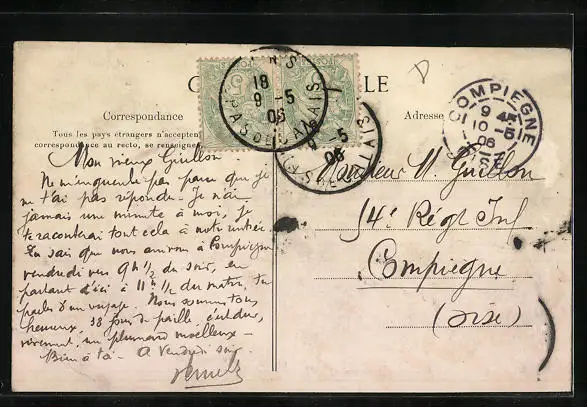 Correspondance
Tous les pays étrangers n'acceptent
correspondance au recto, se renseigner
Adresse
18
9 -5
06
PAS DE CALAIS
9 -5
06
PAS DE CALAIS
COMPIEGNE
9 4E
10 -5
06
OISE
Mon vieux Guillon
Ne m'en veuille pas parce que je
ne t'ai pas répondu. Je n'ai
jamais une minute à moi, je
te raconterai tout cela à notre rentrée.
Tu sais que nous arrivons à Compiègne
vendredi vers 9h ½ du soir, en
partant d'ici à 11h ½ du matin, tu
parles d'un voyage. Nous sommes tous
heureux, 18 jours de paille, c'est dur,
vivement un plumard moelleux -
Bien à toi - A vendredi soir
Monsieur M. Guillon
14e Régt Inf
Compiègne
(Oise)